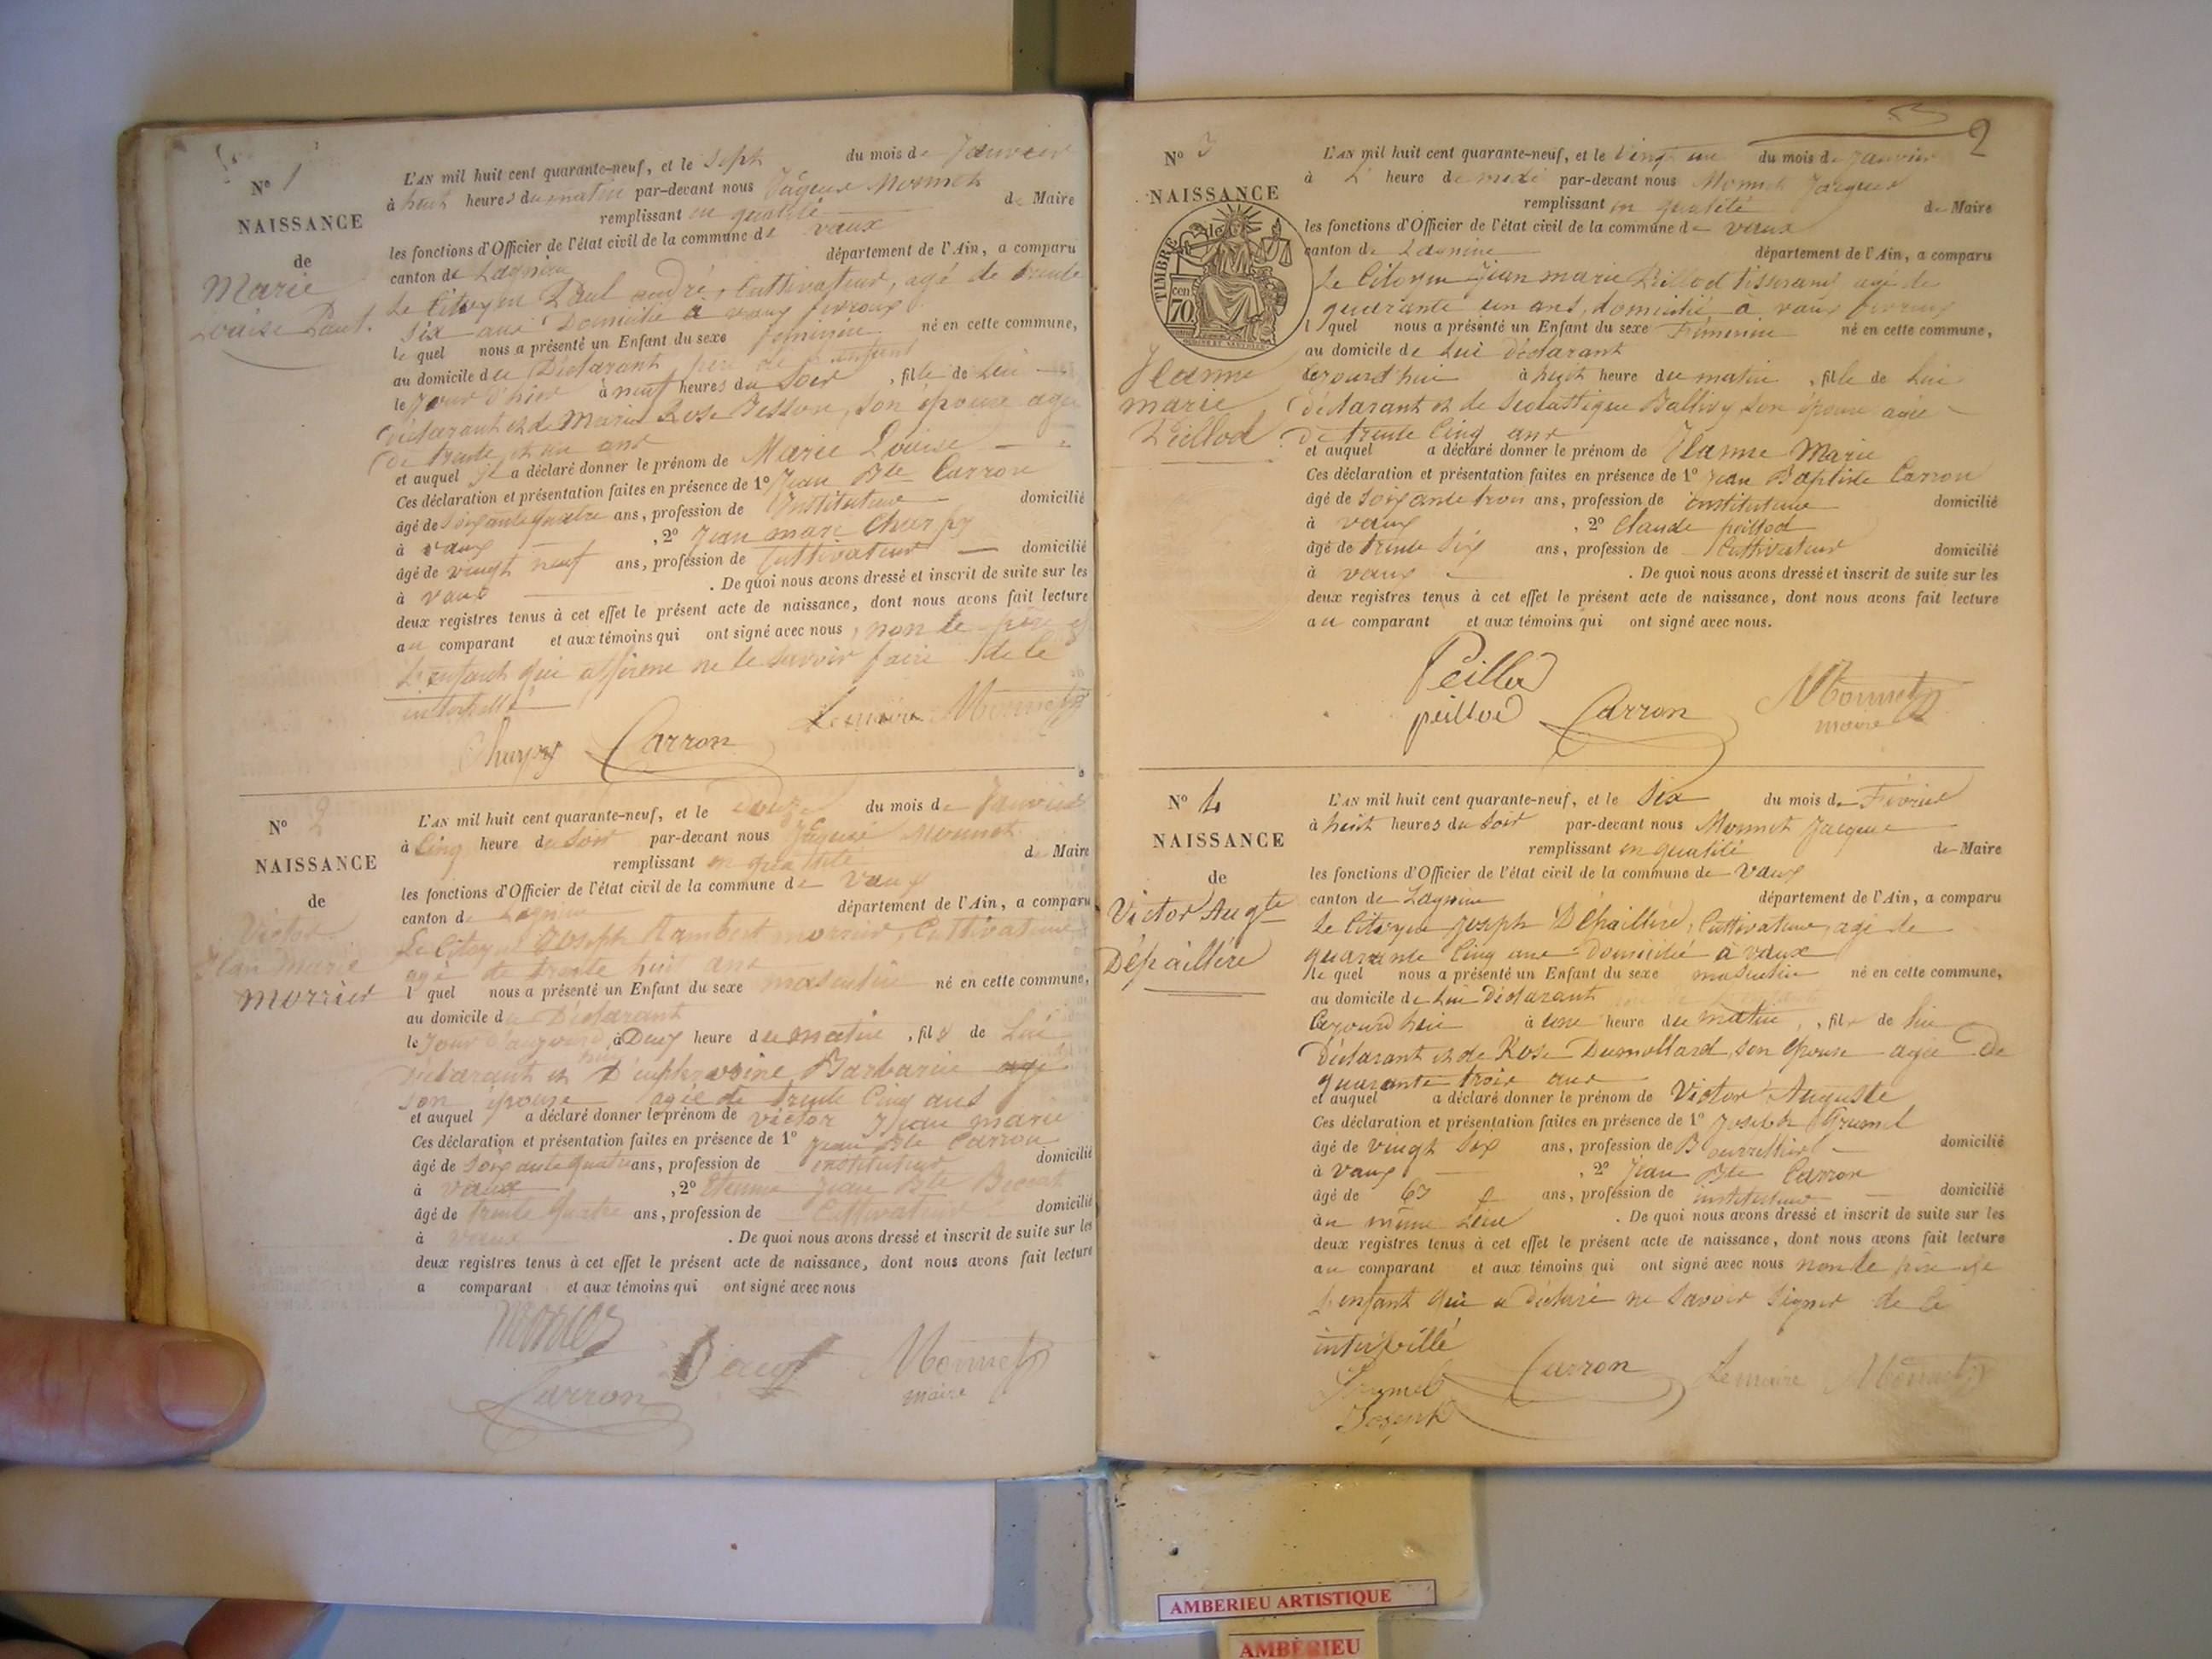 N° 1
NAISSANCE
de
Marie
Louise Paul.
L'AN mil huit cent quarante-neuf, et le Sept du mois de Janvier
à huit heures du matin par-devant nous Jâques Monnet
remplissant en qualité de Maire
les fonctions d'Officier de l'état civil de la commune de vaux
canton de Lagnieu département de l'Ain, a comparu
Le Citoyen Paul andré, Cultivateur, agé de trente
Six ans Domicilié à vaux fevroux
le quel nous a présenté un Enfant du sexe feminin né en cette commune,
au domicile du Déclarant père de l'enfant
le Jour d'hier à neuf heures du Soir, fille de Lui
déclarant et de Marie Rose Besson, son épouse agée
de trente et un ans
et auquel il a déclaré donner le prénom de Marie Louise
Ces déclaration et présentation faites en présence de 1° Jean Bte Carron
âgé de Soixante quatre ans, profession de Instituteur domicilié
à vaux, 2° Jean marie Cherpy
âgé de vingt neuf ans, profession de Cultivateur domicilié
à vaux. De quoi nous avons dressé et inscrit de suite sur les
deux registres tenus à cet effet le présent acte de naissance, dont nous avons fait lecture
au comparant et aux témoins qui ont signé avec nous, non le père de
L'enfant qui affirme ne le savoir faire de ce
interpellé
Cherpy Carron Le maire Monnet
N° 2
NAISSANCE
de
Victor
Jean Marie
morrier
L'AN mil huit cent quarante-neuf, et le douze du mois de Janvier
à Cinq heure du Soir par-devant nous Jâques Monnet
remplissant en qualité de Maire
les fonctions d'Officier de l'état civil de la commune de Vaux
canton de Lagnieu département de l'Ain, a comparu
Le Citoyen Joseph Rambert morrier, Cultivateur
agé de trente huit ans
l quel nous a présenté un Enfant du sexe masculin né en cette commune,
au domicile du Déclarant
le Jour d'aujourd'hui à Deux heure du matin, fils de Lui
déclarant et D'euphrosine Barbarin agé
son épouse agée de trente Cinq ans
et auquel a déclaré donner le prénom de victor Jean marie
Ces déclaration et présentation faites en présence de 1° Jean Bte Carron
âgé de Soixante quatre ans, profession de instituteur domicilié
à vaux, 2° Etienne Jean Bte
âgé de trente quatre ans, profession de Cultivateur domicilié
à vaux. De quoi nous avons dressé et inscrit de suite sur les
deux registres tenus à cet effet le présent acte de naissance, dont nous avons fait lecture
a comparant et aux témoins qui ont signé avec nous
Carron Monnet
maire
2
N° 3
NAISSANCE
TIMBRE
cen
70
Jeanne
marie
Peillod
L'AN mil huit cent quarante-neuf, et le vingt un du mois de Janvier
à L' heure de midi par-devant nous Monnet Jacques
remplissant en qualité de Maire
les fonctions d'Officier de l'état civil de la commune de vaux
canton de Lagnieu département de l'Ain, a comparu
Le Citoyen Jean marie Peillod tisserand agé de
quarante un ans, domicilié à vaux fevroux
l quel nous a présenté un Enfant du sexe Féminin né en cette commune,
au domicile de Lui déclarant
cejourd'hui à huit heure du matin, fille de Lui
déclarant et de Scolastique Ballivy son épouse agée
de trente Cinq ans
et auquel a déclaré donner le prénom de Jeanne Marie
Ces déclaration et présentation faites en présence de 1° Jean Baptiste Carron
âgé de Soixante trois ans, profession de instituteur domicilié
à vaux, 2° Claude peillod
âgé de trente Six ans, profession de Cultivateur domicilié
à vaux. De quoi nous avons dressé et inscrit de suite sur les
deux registres tenus à cet effet le présent acte de naissance, dont nous avons fait lecture
au comparant et aux témoins qui ont signé avec nous.
Peillod
peillod Carron Monnet
maire
N° 4
NAISSANCE
de
Victor Augte
Dépaillère
L'AN mil huit cent quarante-neuf, et le Six du mois de Février
à huit heures du Soir par-devant nous Monnet Jacques
remplissant en qualité de Maire
les fonctions d'Officier de l'état civil de la commune de Vaux
canton de Lagnieu département de l'Ain, a comparu
Le Citoyen Joseph Dépaillère, Cultivateur, agé de
quarante Cinq ans Domicilié à vaux
le quel nous a présenté un Enfant du sexe masculin né en cette commune,
au domicile de Lui Déclarant
Cejourd'hui à une heure du matin, fils de lui
Déclarant et de Rose Dumollard, son épouse agée De
quarante trois ans
et auquel a déclaré donner le prénom de Victor Auguste
Ces déclaration et présentation faites en présence de 1° Joseph Grumel
âgé de vingt Six ans, profession de Bourrellier domicilié
à vaux, 2° Jean Bte Carron
âgé de 63 ans, profession de instituteur domicilié
au même Lieu. De quoi nous avons dressé et inscrit de suite sur les
deux registres tenus à cet effet le présent acte de naissance, dont nous avons fait lecture
au comparant et aux témoins qui ont signé avec nous non le père de
L'enfant qui a Déclaré ne Savoir Signer de ce
interpellé
Grumel Carron Le maire Monnet
Joseph
AMBERIEU ARTISTIQUE
AMBÉRIEU